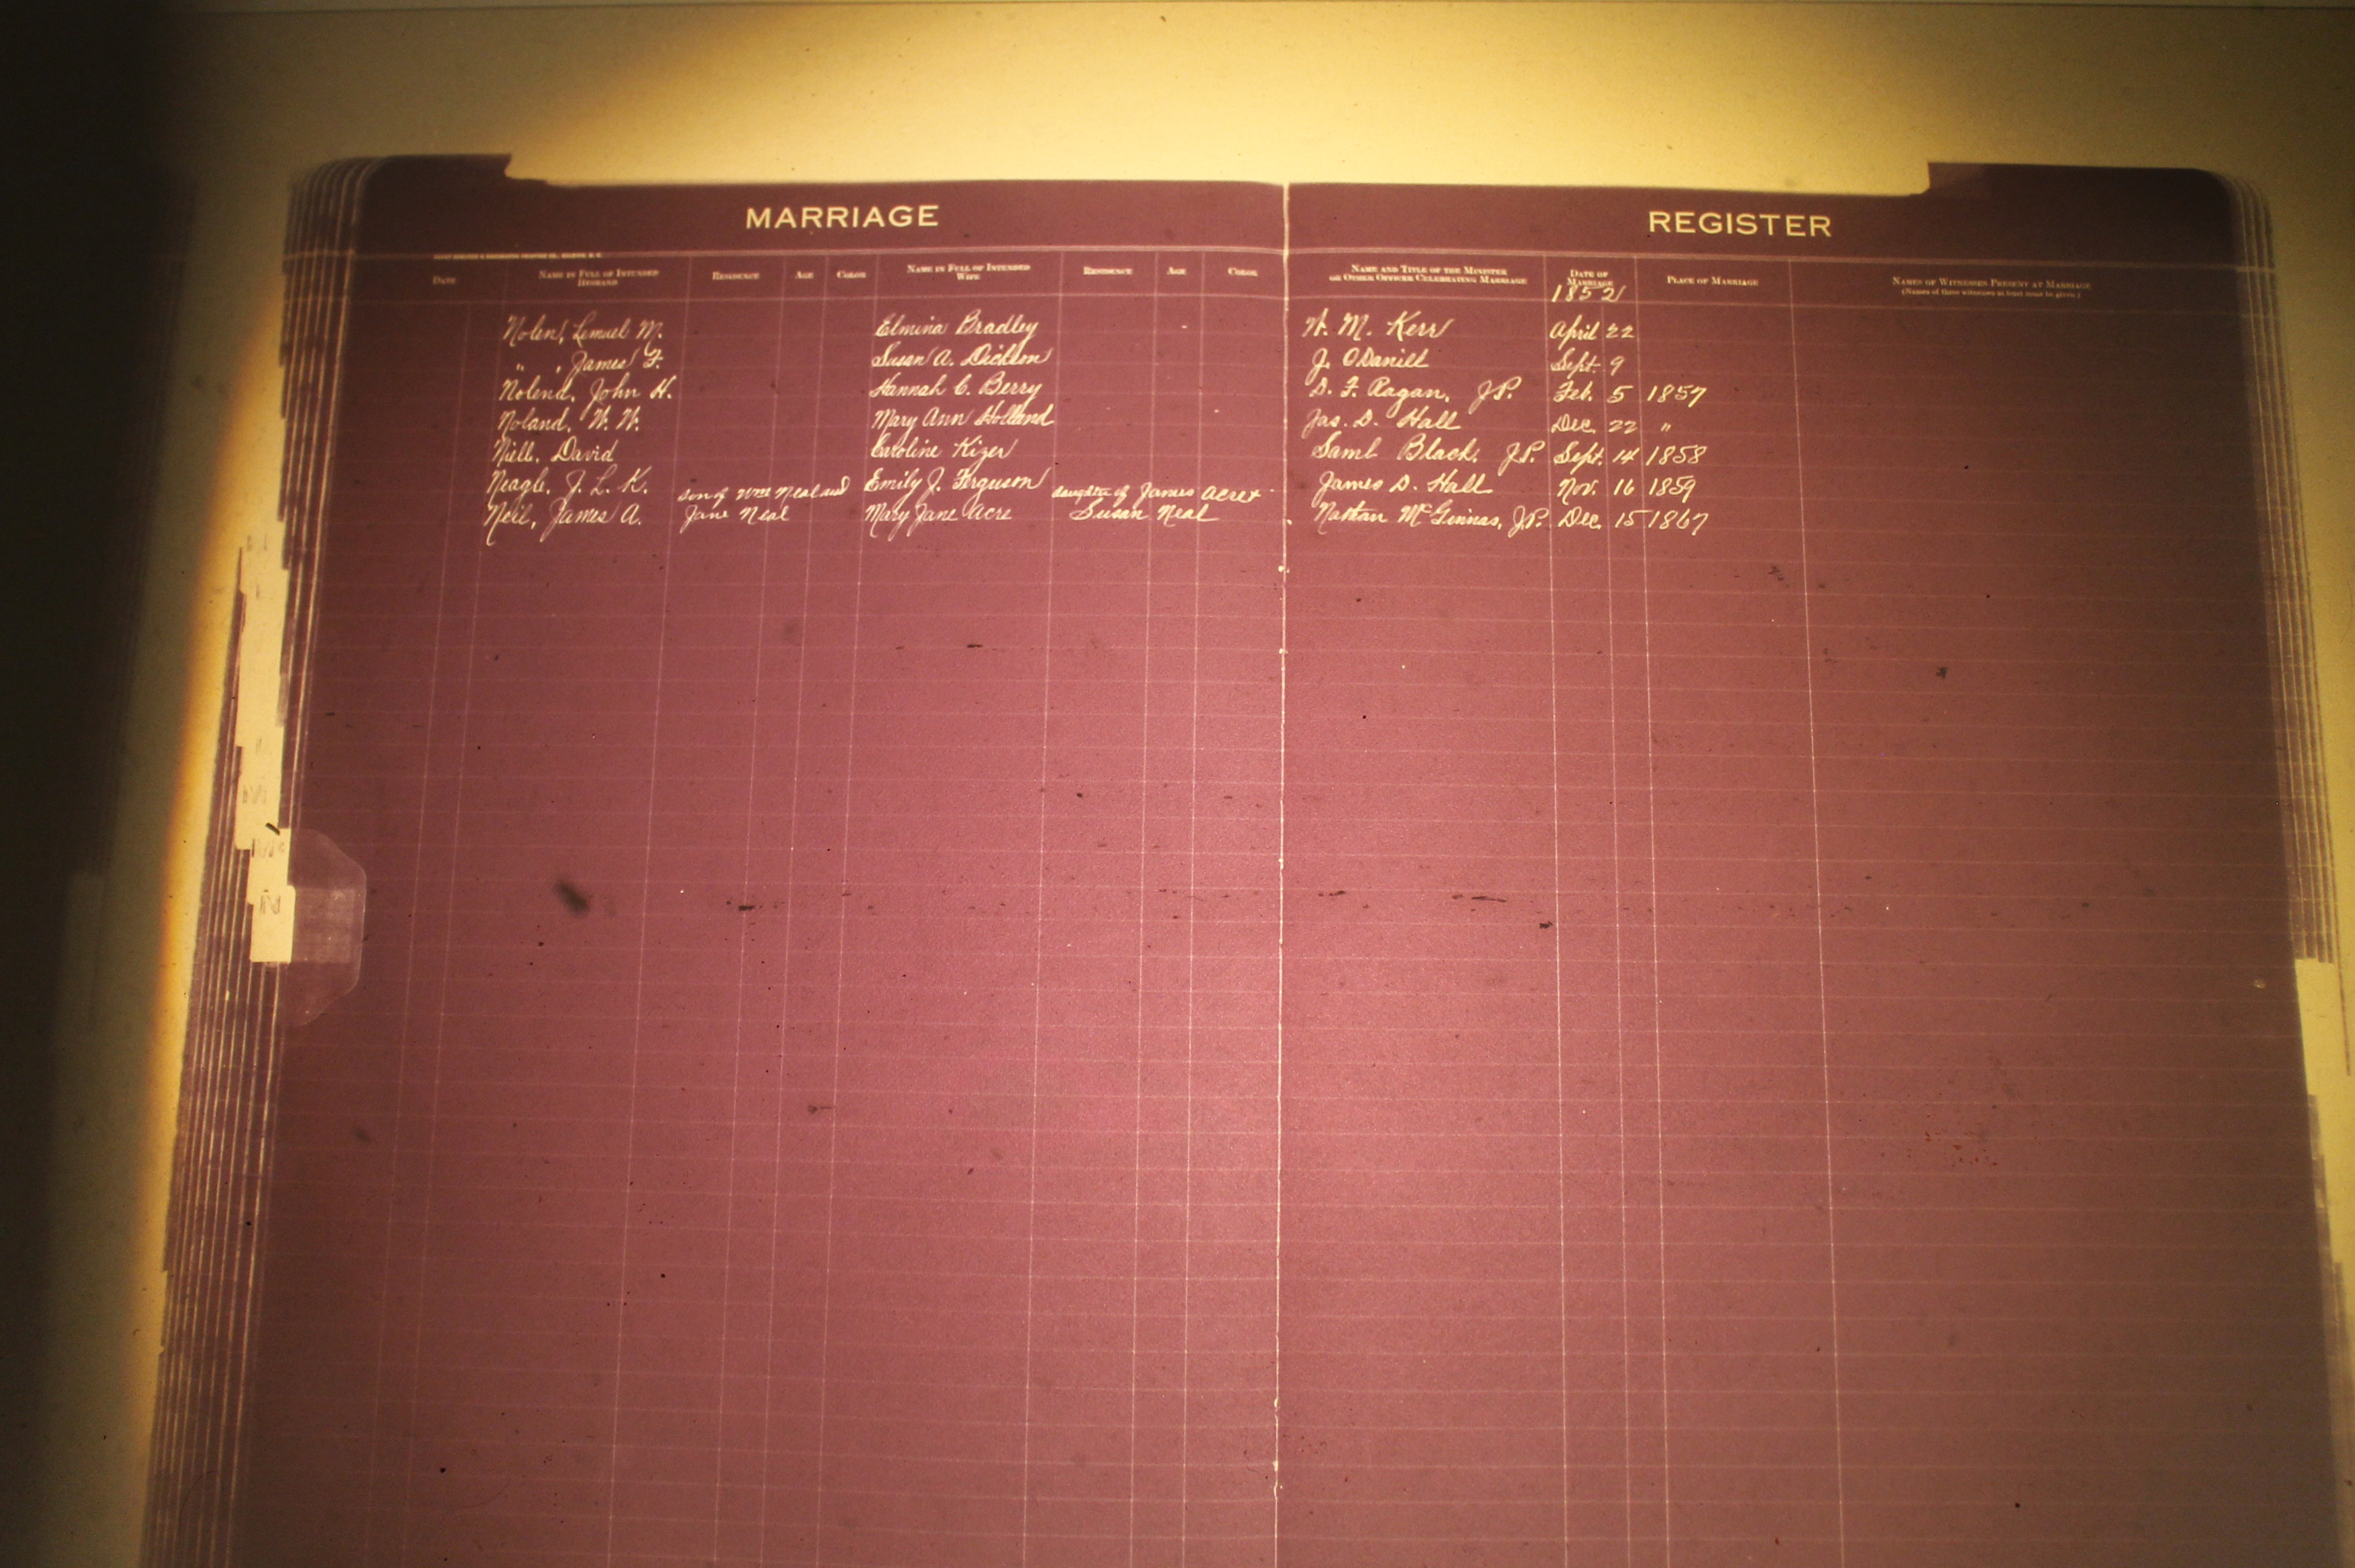 MARRIAGE REGISTER
DATE NAME IN FULL OF INTENDED HUSBAND RESIDENCE AGE COLOR NAME IN FULL OF INTENDED WIFE RESIDENCE AGE COLOR NAME AND TITLE OF THE MINISTER OR OTHER OFFICER CELEBRATING MARRIAGE DATE OF MARRIAGE PLACE OF MARRIAGE NAMES OF WITNESSES PRESENT AT MARRIAGE (Names of three witnesses at least must be given.)
1852
Nolen, Lemuel M. Elmina Bradley W. M. Kerr April 22
" , James F. Susan A. Dickson J. O'Daniell Sept. 9
Nolend, John H. Hannah C. Berry D. F. Ragan, J.P. Feb. 5 1857
Noland, W. W. Mary Ann Holland Jas. D. Hall Dec. 22 "
Niell, David Caroline Kizer Saml Black, J.P. Sept. 14 1858
Neagle, J. L. K. Emily J. Ferguson James D. Hall Nov. 16 1859
son of Wm Neal and daughter of James Acre &
Neil, James A. Jane Neal Mary Jane Acre Susan Neal Nathan McGinnas, J.P. Dec. 15 1867